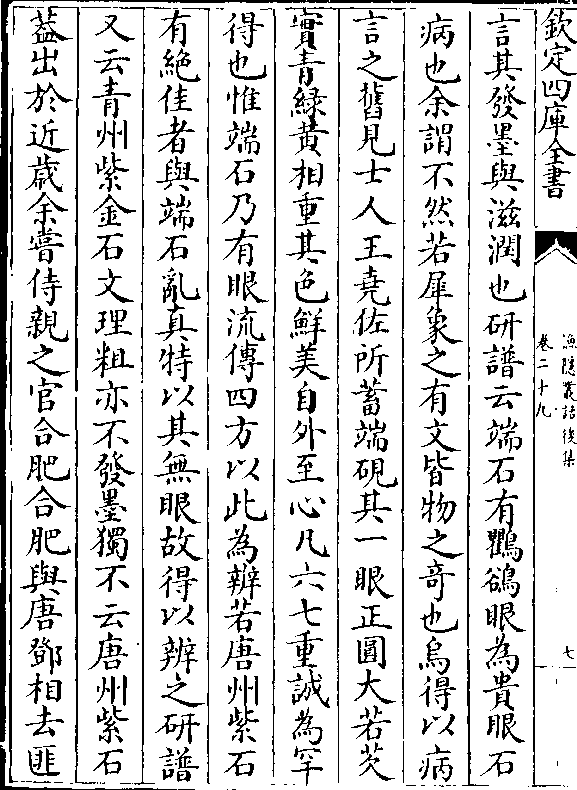 欽定四庫全書
漁隱叢話後集
卷二十九
七
言其發墨與滋潤也研譜云端石有鸜鵒眼為貴眼石
病也余謂不然若犀象之有文皆物之竒也烏得以病
言之舊見士人王堯佐所蓄端硯其一眼正圓大若芡
實青緑黄相重其色鮮美自外至心凡六七重誠為罕
得也惟端石乃有眼流傳四方以此為辨若唐州紫石
有絶佳者與端石亂真特以其無眼故得以辨之研譜
又云青州紫金石文理粗亦不發墨獨不云唐州紫石
葢出於近歲余嘗侍親之官合肥合肥與唐鄧相去匪